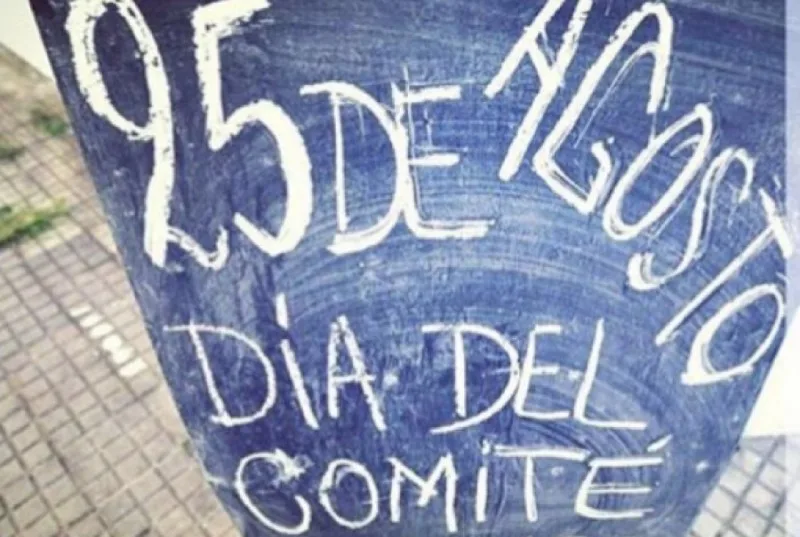 25 DE AGOSTO
DÍA DEL
COMITÉ